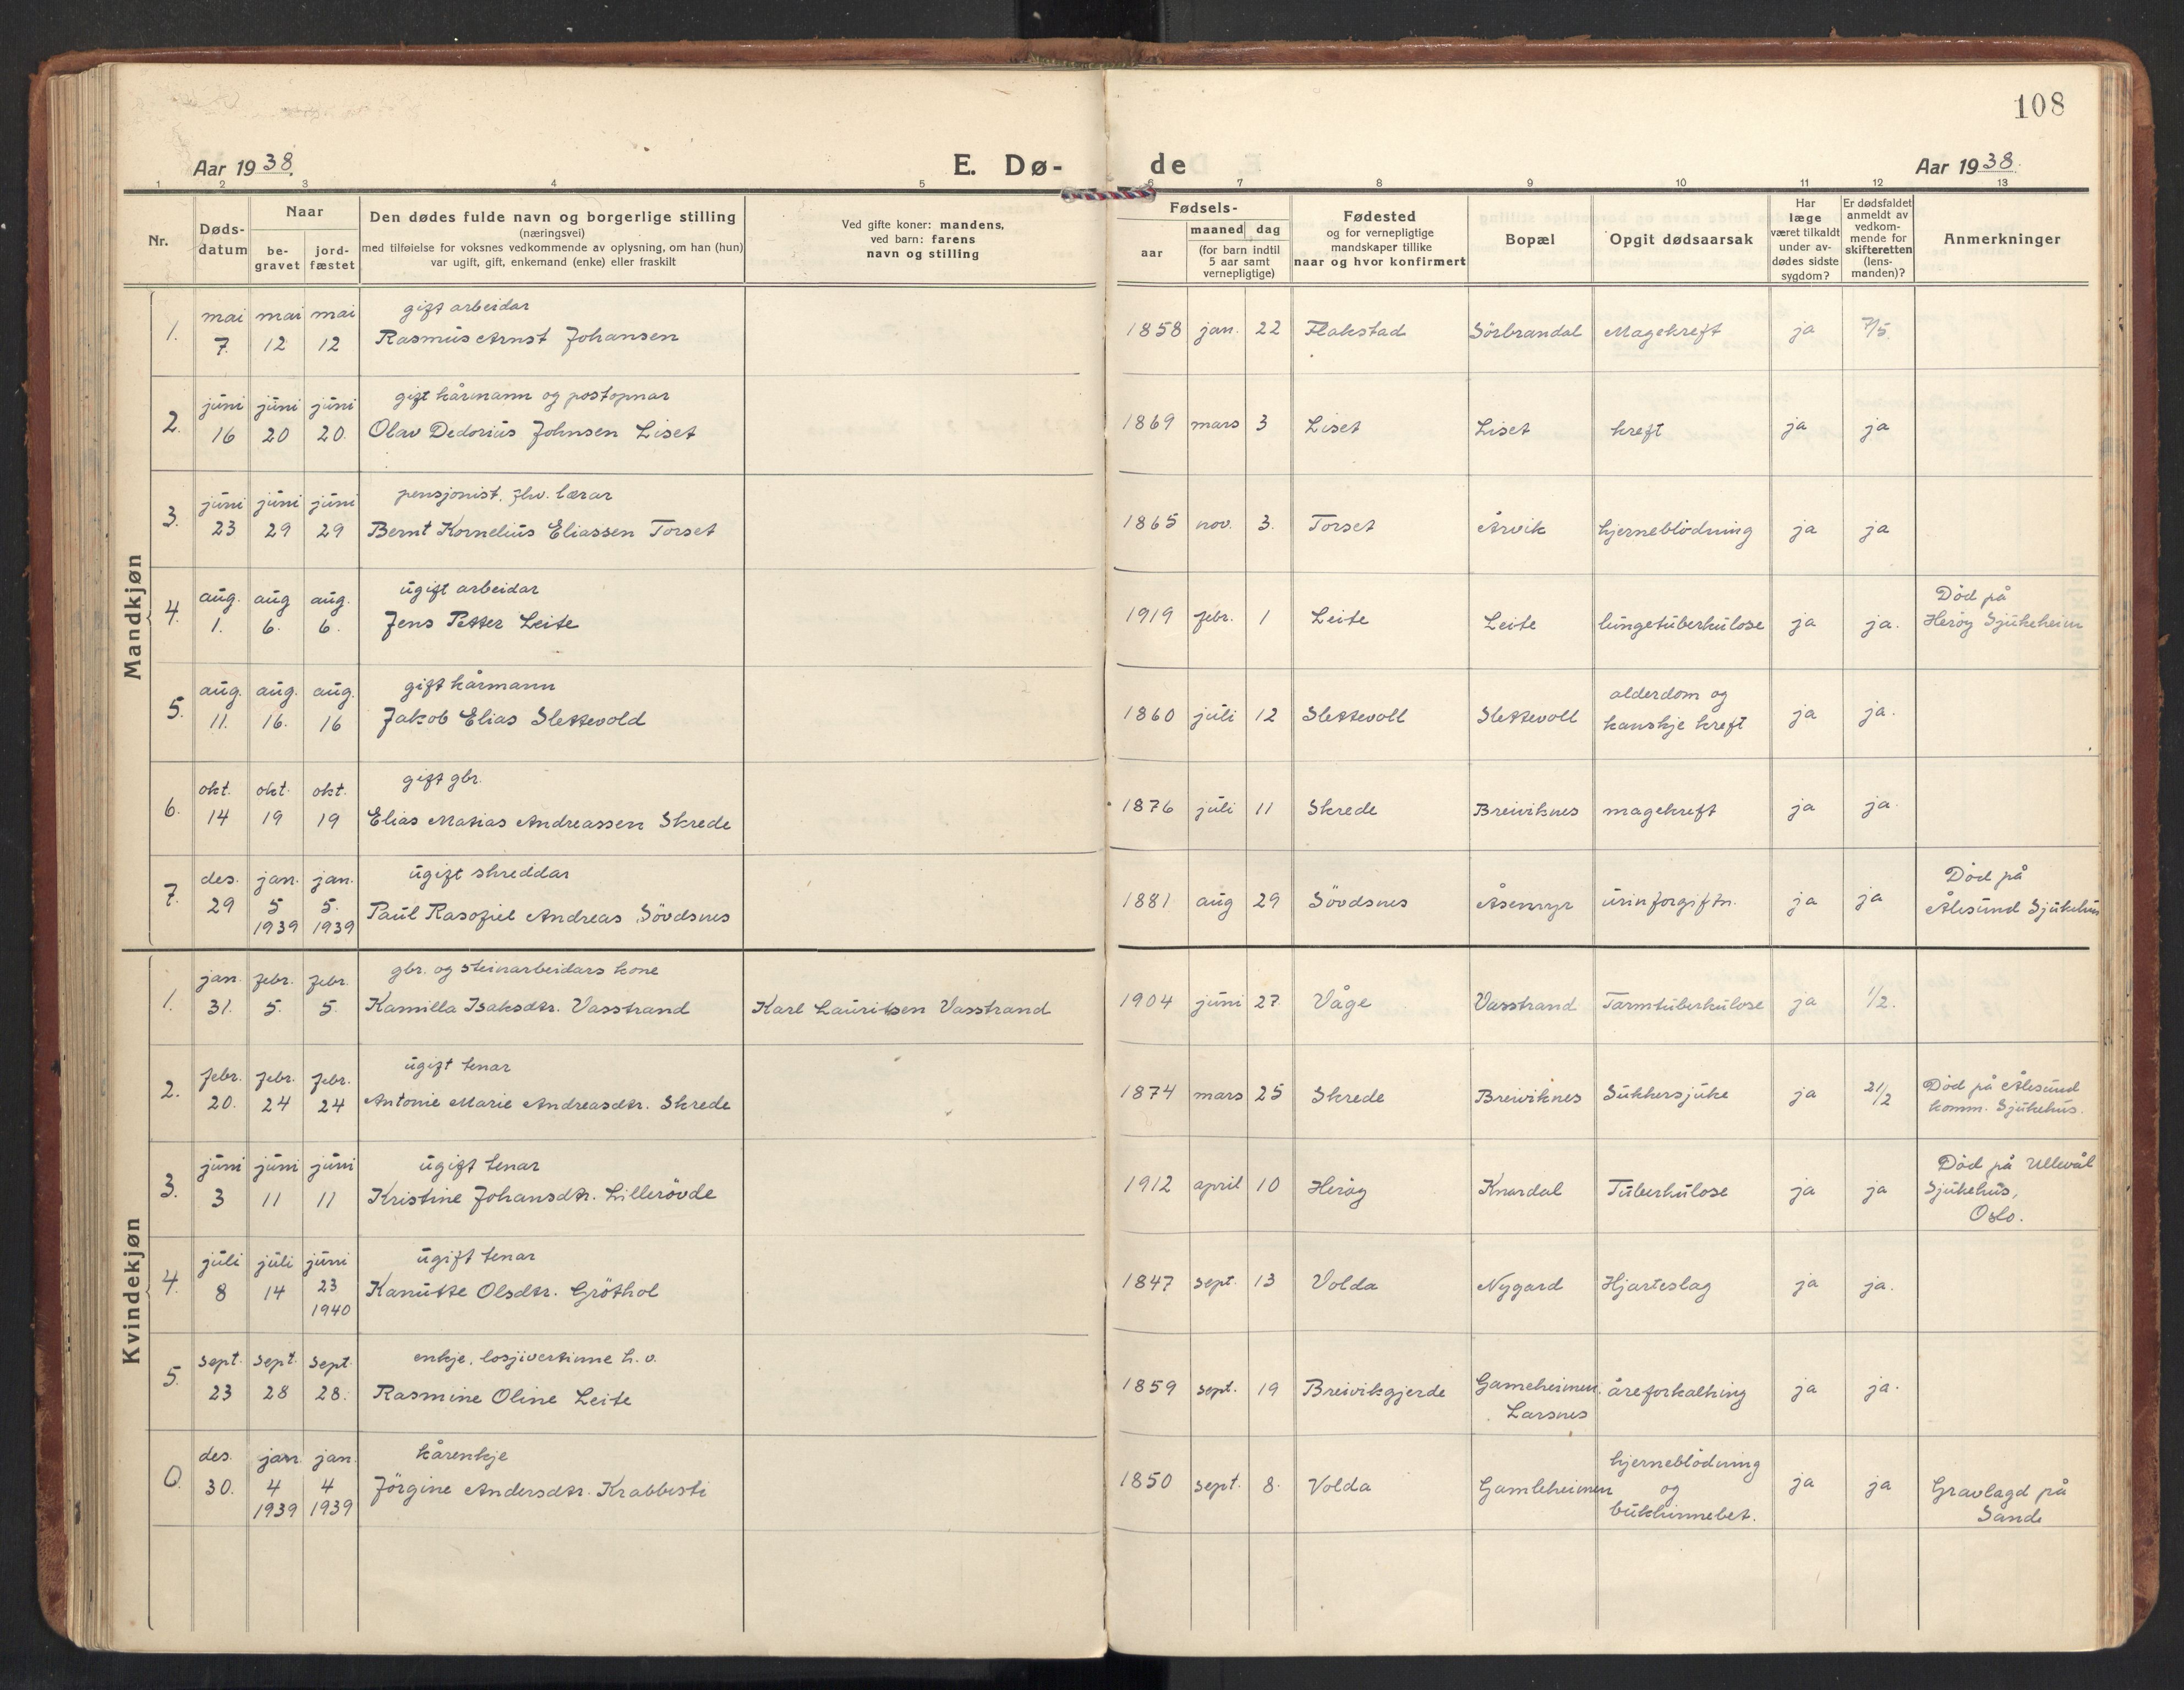 108
Aar 1938.
E. Dø-
de
Aar 1938.
1 2 3 4 5 6 7 8 9 10 11 12 13
Nr.
Døds-
datum
Naar
be-
gravet
jord-
fæstet
Den dødes fulde navn og borgerlige stilling
(næringsvei)
med tilføielse for voksnes vedkommende av oplysning, om han (hun)
var ugift, gift, enkemand (enke) eller fraskilt
Ved gifte koner: mandens,
ved barn: farens
navn og stilling
Fødsels-
aar
maaned dag
(for barn indtil
5 aar samt
vernepligtige)
Fødested
og for vernepligtige
mandskaper tillike
naar og hvor konfirmert
Bopæl
Opgit dødsaarsak
Har
læge
været tilkaldt
under av-
dødes sidste
sygdom?
Er dødsfaldet
anmeldt av
vedkom-
mende for
skifteretten
(lens-
manden)?
Anmerkninger
Mandkjøn
mai mai mai gift arbeidar
1. 7. 12 12 Rasmus Arnst Johansen 1858 jan. 22 Flakstad Sörbrandal Magekreft ja 7/5.
juni juni juni gift kårmann og postopnar
2. 16 20 20. Olav Dedorius Johnsen Liset 1869 mars 3 Liset Liset kreft ja ja
juni juni juni pensjonist, fhv. lærar
3. 23 29 29 Bernt Kornelius Eliassen Torset 1865 nov. 3. Torset Årvik hjerneblödning ja ja
aug. aug aug. ugift arbeidar Död på
4. 1. 6. 6. Jens Petter Leite 1919 febr. 1 Leite Leite lungetuberkulose ja ja. Heröy Sjukeheim
aug. aug. aug. gift kårmann alderdom og
5. 11. 16. 16 Jakob Elias Slettevold 1860 juli 12 Slettevoll Slettevoll kanskje kreft ja ja.
okt. okt. okt. gift gbr.
6. 14 19 19 Elias Matias Andreassen Skrede 1876 juli 11 Skrede Breiviknes magekreft ja ja.
des. jan. jan. ugift skreddar Död på
7. 29 5 5. Paul Rasofiel Andreas Sövdsnes 1881 aug 29 Sövdsnes Åsemyr urinforgiftn. ja ja Ålesund Sjukehus
1939 1939
Kvindekjøn
jan. febr. febr. gbr. og steinarbeidars kone
1. 31. 5. 5. Kamilla Isaksdtr. Vasstrand Karl Lauritsen Vasstrand 1904 juni 27. Våge Vasstrand Tarmtuberkulose ja 1/2.
febr. febr. febr. ugift tenar
2. 20. 24 24 Antonie Marie Andreasdtr. Skrede 1874 mars 25 Skrede Breiviknes Sukkersjuke ja 21/2 Död på Ålesund
komm. Sjukehus.
juni juni juni ugift tenar Död på Ullevål
3. 3 11 11 Kristine Johansdtr. Lillerövde 1912 april 10 Heröy Knardal Tuberkulose ja ja Sjukehus,
Oslo.
juli juli juni ugift tenar
4. 8 14 23 Kanutte Olsdtr. Gröthol 1847 sept. 13 Volda Nygard Hjarteslag ja ja.
1940
sept. sept. sept. enkje, losjivertinne h. v.
5. 23 28 28. Rasmine Oline Leite 1859 sept. 19 Breivikgjerde Gameheimen åreforkalking ja ja.
Larsnes
des. jan. jan. kårenkje hjerneblödning
0. 30. 4 4 Jörgine Andersdtr. Krabbesti 1850 sept. 8. Volda Gamleheimen og ja ja Gravlagd på
1939 1939 bukhinnebet. Sande